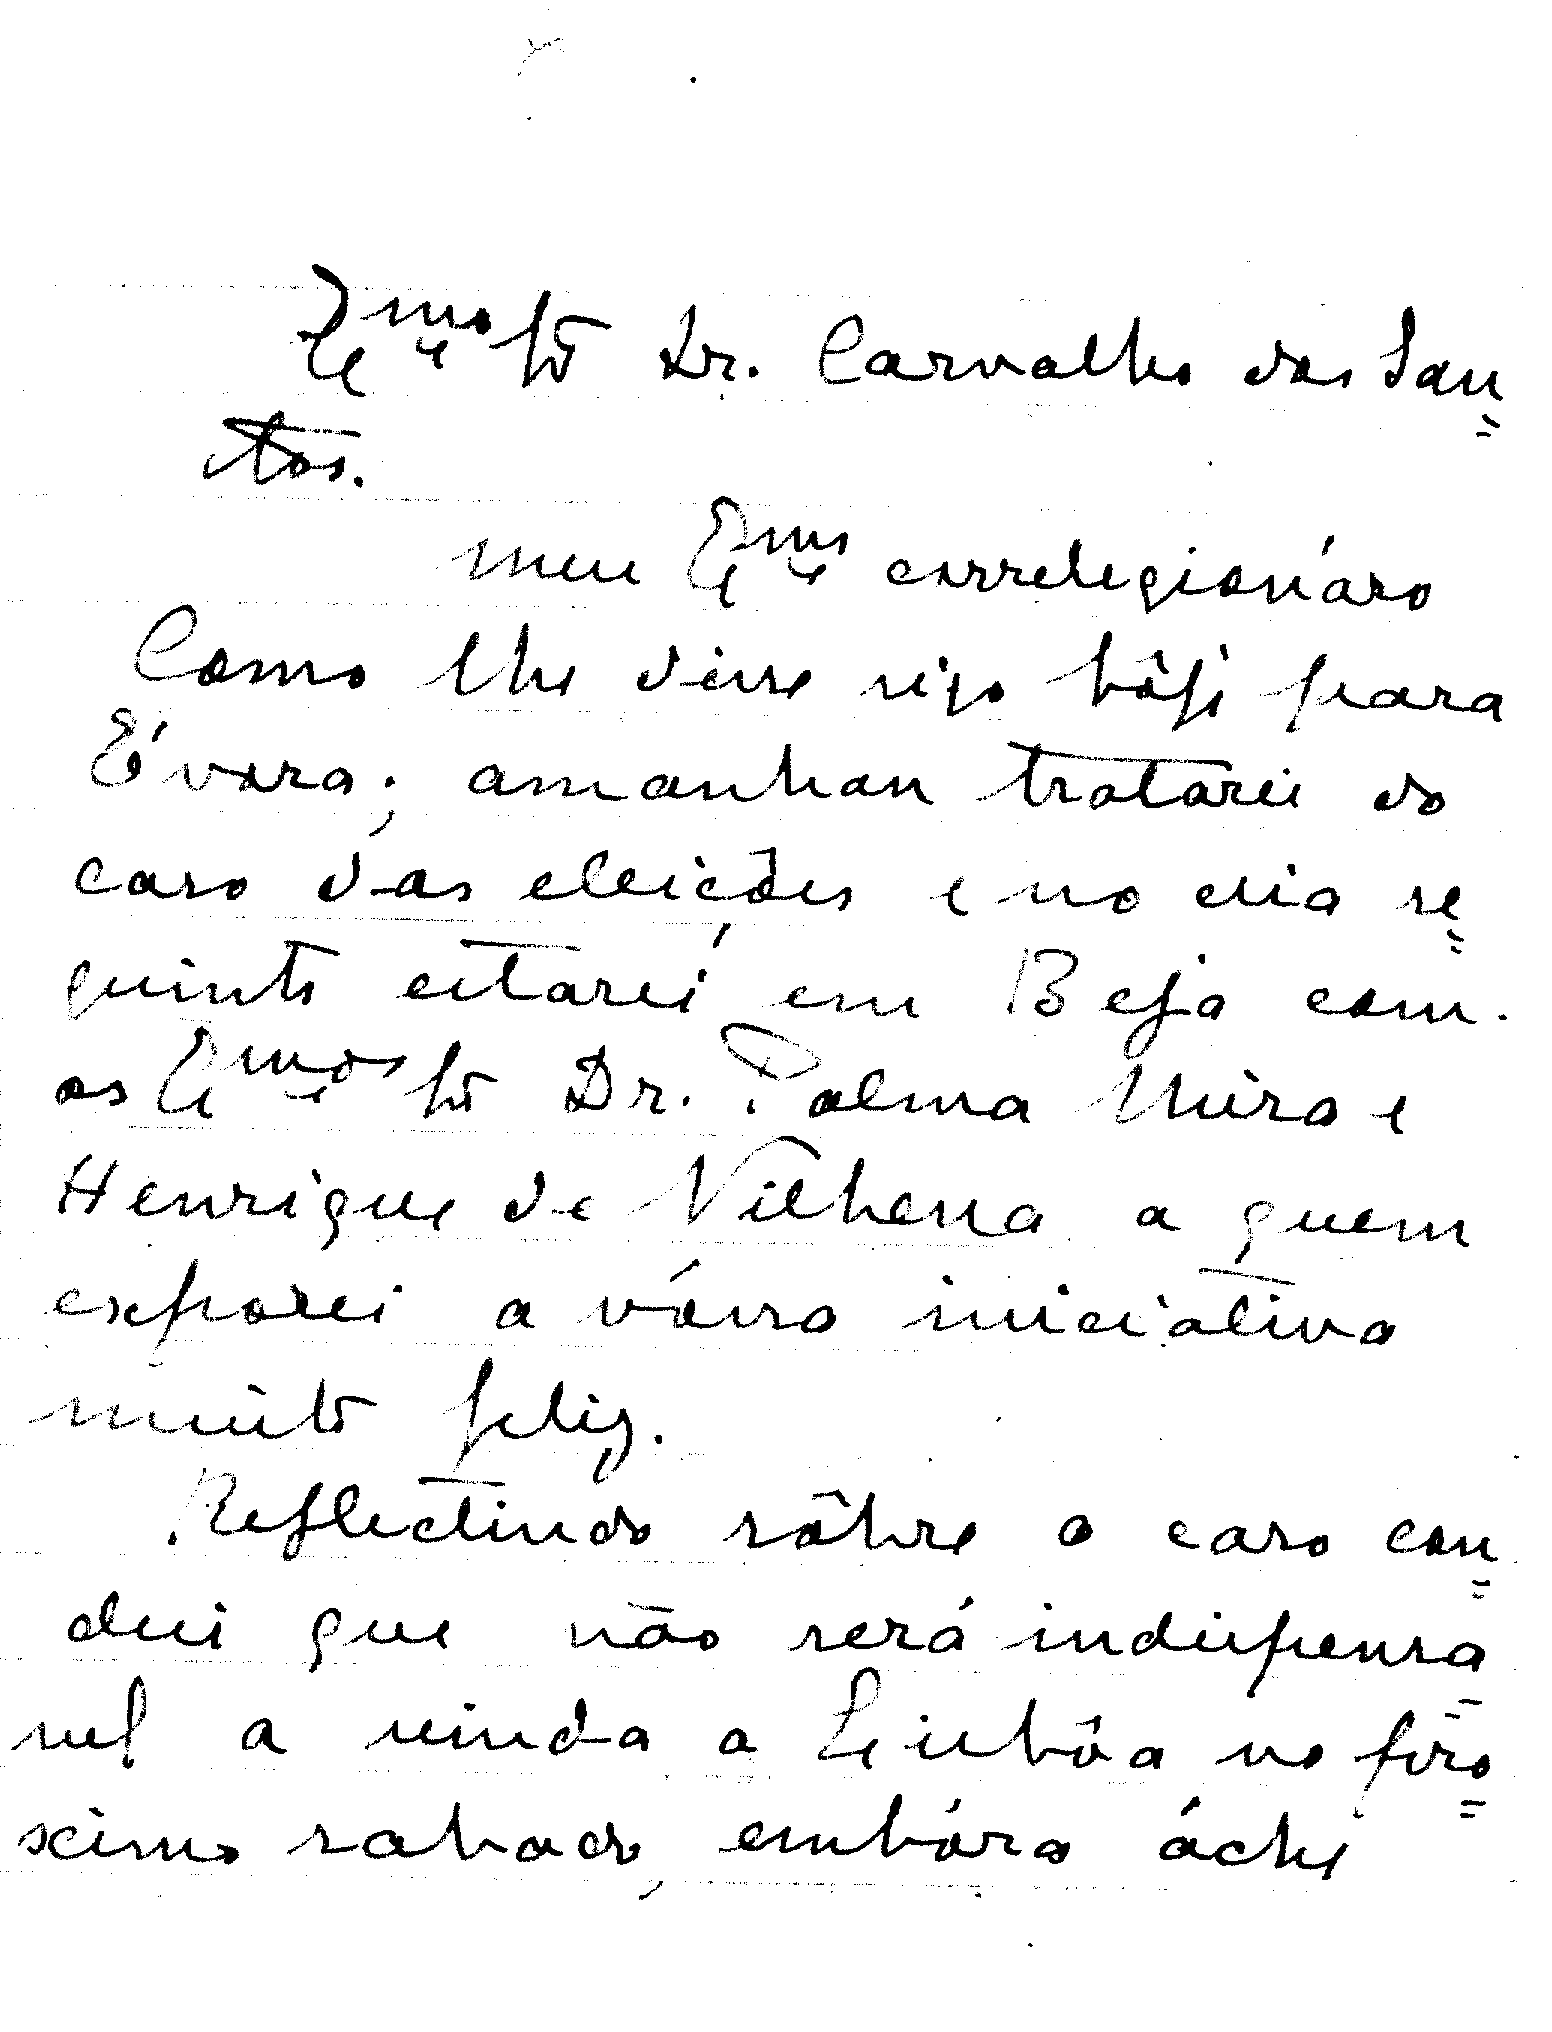 Exmo Sr Dr. Carvalho dos San=
tos.
Meu Exmo correlegionário
Como lhe disse sigo hôje para
Évora; amanhan tratarei do
caso das eleições e no dia se=
guinte estarei em Beja com
os Exmos Srs Dr. Palma Mira e
Henrique de Vilhena a quem
exporei a vóssa iniciativa
muito feliz.
Reflectindo sôbre o caso con=
clui que não será indispensa=
vel a vinda a Lisbôa no pro=
ximo sabado, embóra áche